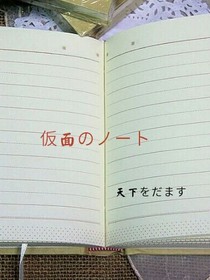 仮面のノート
天下をだます